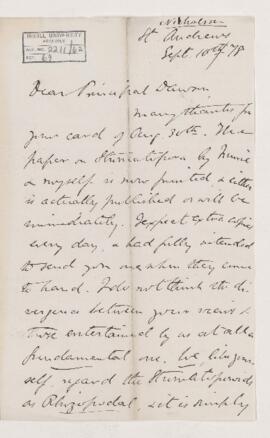 Nicholson
McGILL UNIVERSITY
ARCHIVES
ACC. NO. 2211/62
REF. 69
St Andrews
Sept. 10th/78
Dear Principal Dawson,
Many thanks for
your card of Aug. 30th. The
paper on Stromatopora by Murie
& myself is now printed & either
is actually published or will be
immediately. I expect extra copies
every day, & had fully intended
to send you one when they came
to hand. I do not think the di-
vergence between your views &
those entertained by us at all a
fundamental one. We, like your-
self, regard the Stromatoporoids
as Rhizopodal, & it is simply